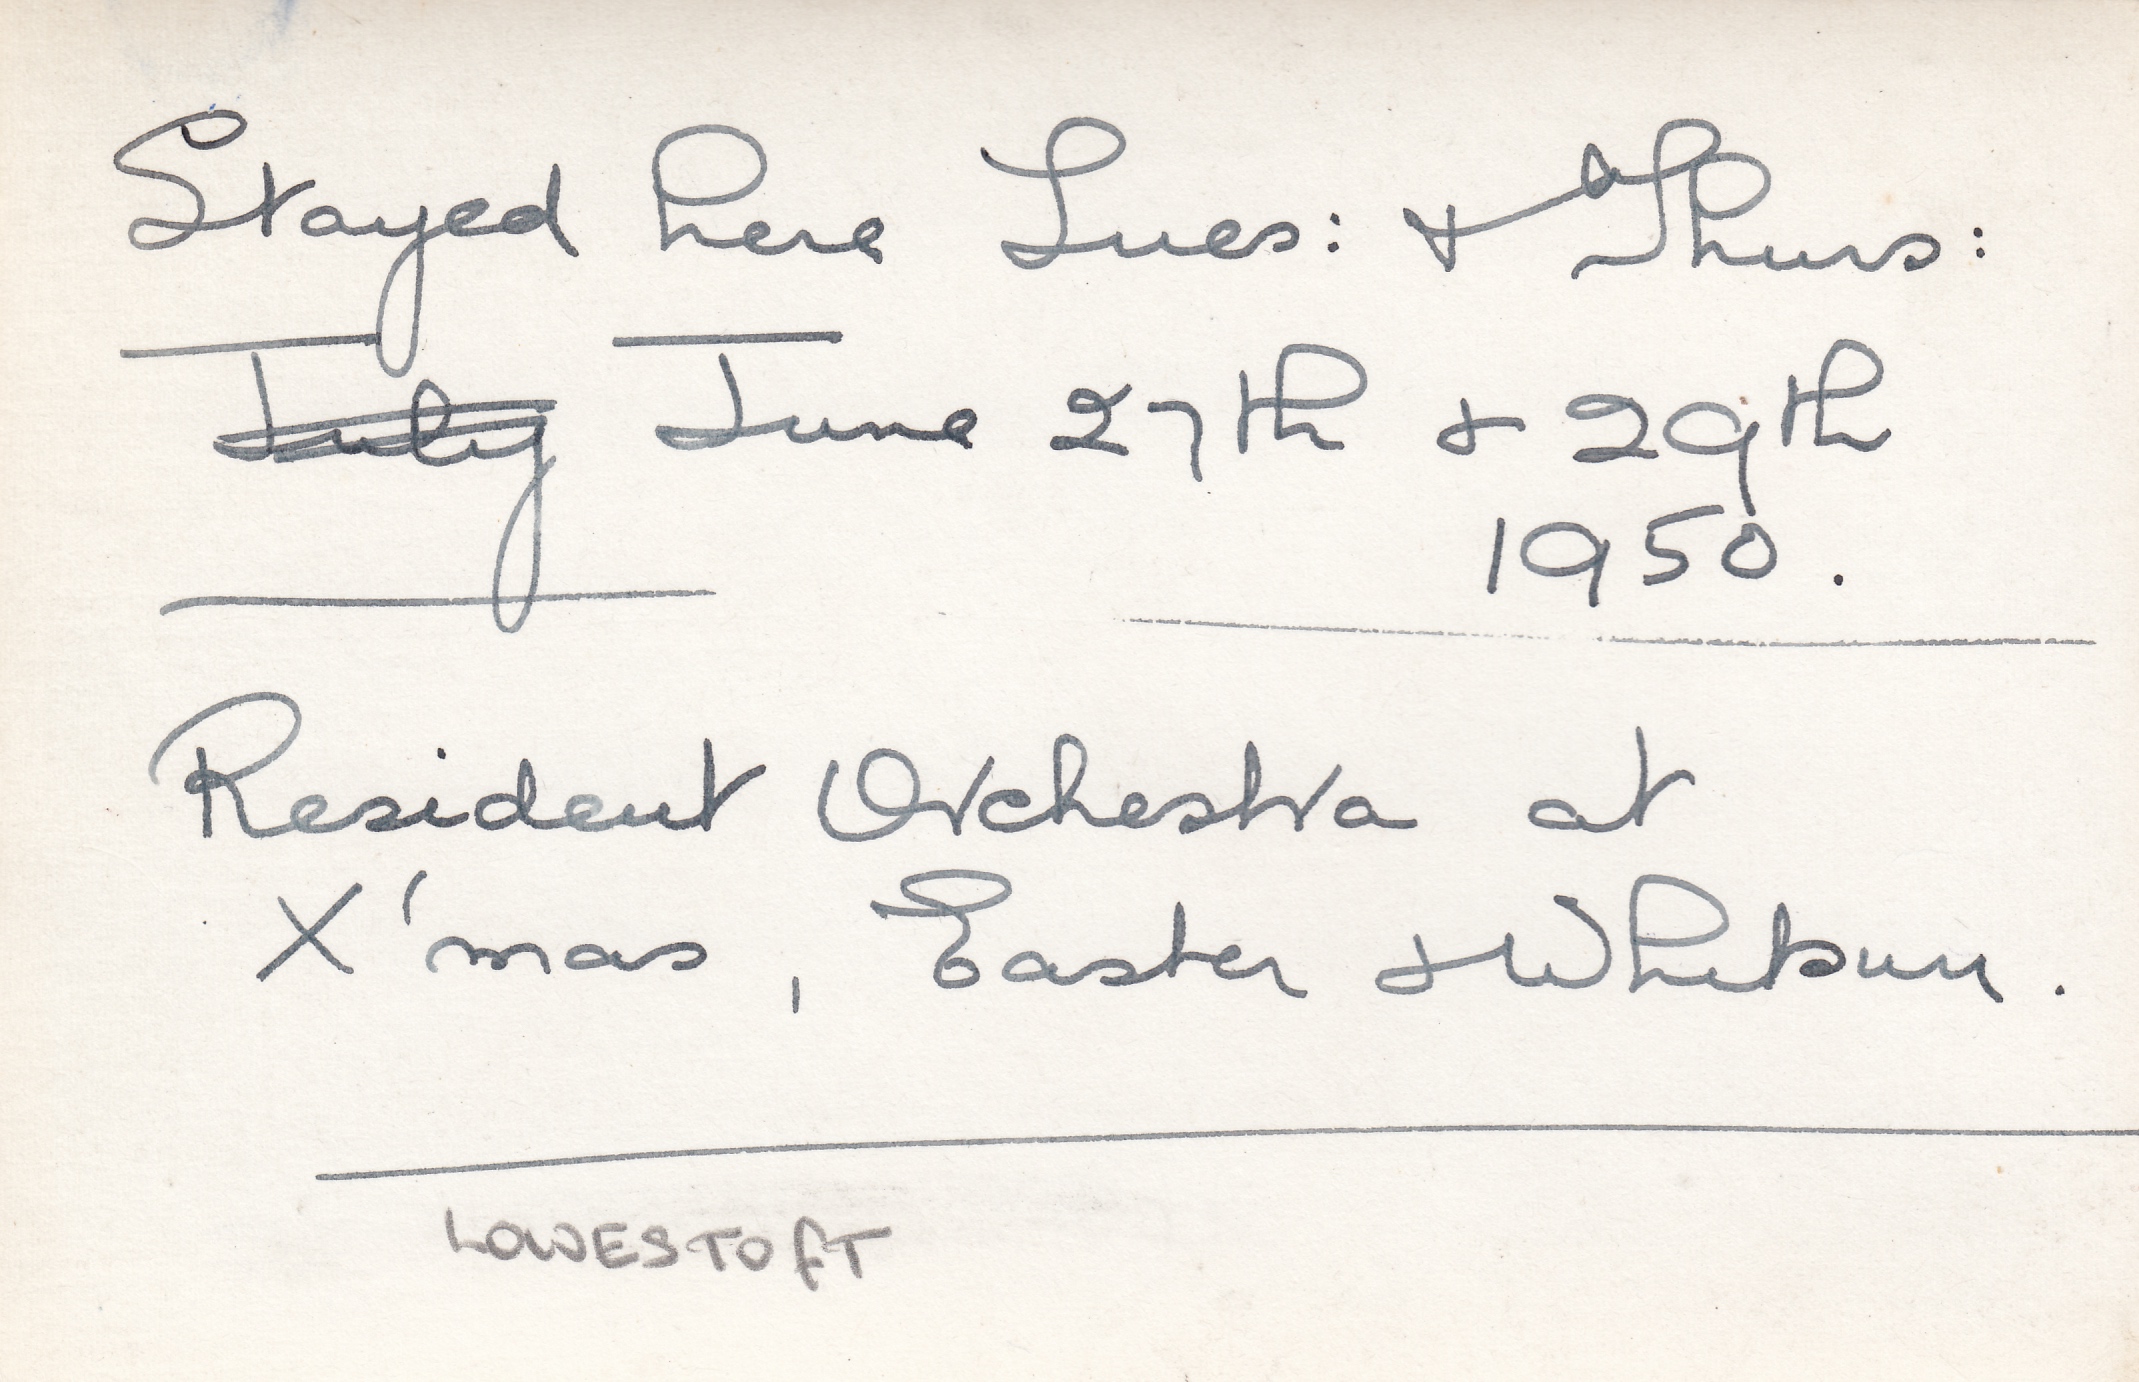 Stayed here Tues: & Thurs:
July June 27th & 29th
1950.
Resident Orchestra at
X'mas, Easter & Whitsun.
LOWESTOfT